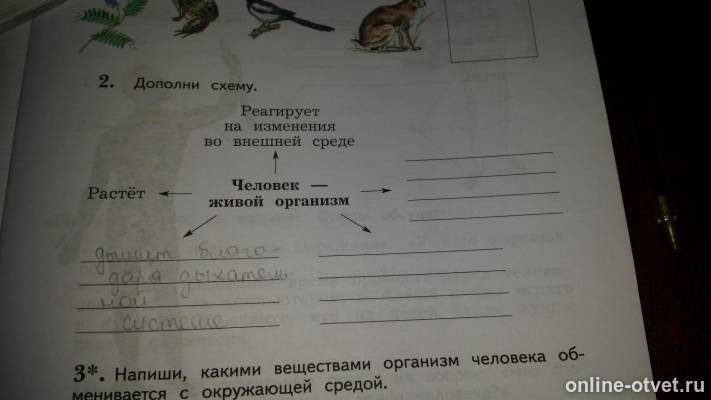 2. Дополни схему.
Реагирует
на изменения
во внешней среде
Растёт
Человек —
живой организм
дышит благо-
даря дыхатель-
ной
системе
3*. Напиши, какими веществами организм человека об-
менивается с окружающей средой.
online-otvet.ru